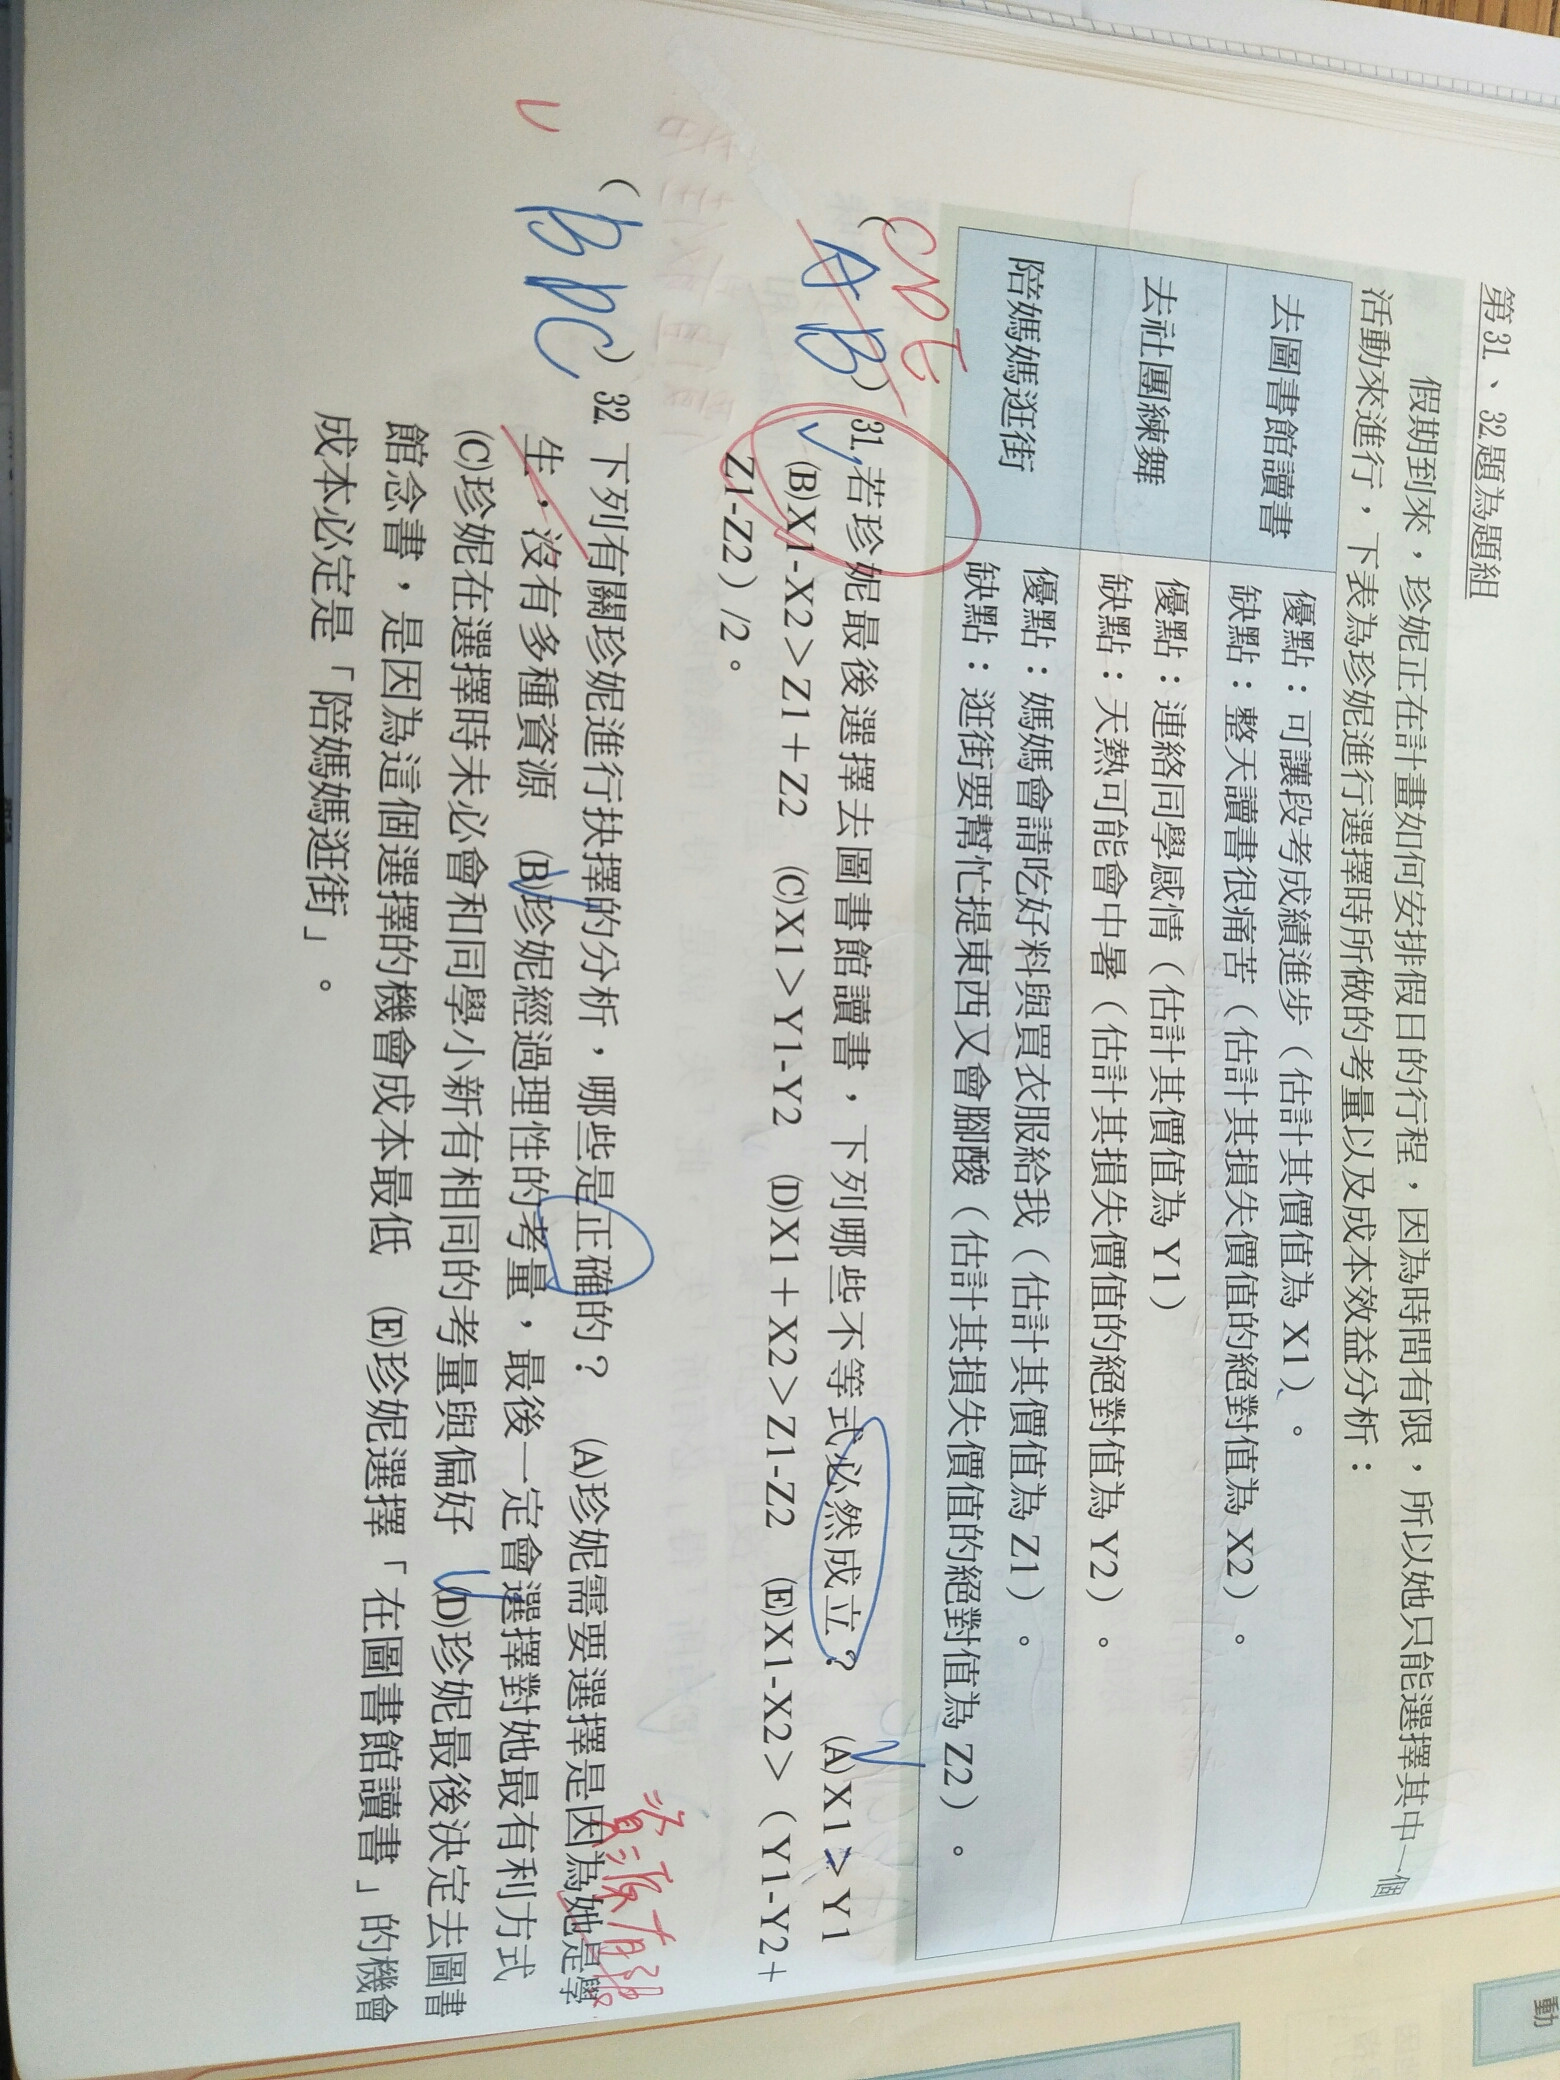 第31、32題為題組
假期到來，珍妮正在計畫如何安排假日的行程，因為時間有限，所以她只能選擇其中一個
活動來進行，下表為珍妮進行選擇時所做的考量以及成本效益分析：
去圖書館讀書
優點：可讓段考成績進步（估計其價值為 X1）。
缺點：整天讀書很痛苦（估計其損失價值的絕對值為 X2）。
去社團練舞
優點：連絡同學感情（估計其價值為 Y1）
缺點：天熱可能會中暑（估計其損失價值的絕對值為 Y2）。
陪媽媽逛街
優點：媽媽會請吃好料與買衣服給我（估計其價值為 Z1）。
缺點：逛街要幫忙提東西又會腳酸（估計其損失價值的絕對值為 Z2）。
CDE
（AB）31.若珍妮最後選擇去圖書館讀書，下列哪些不等式必然成立？ (A)X1＞Y1
(B)X1-X2＞Z1＋Z2 (C)X1＞Y1-Y2 (D)X1＋X2＞Z1-Z2 (E)X1-X2＞（Y1-Y2＋
Z1-Z2）/2。
資源有限
（BDC）32.下列有關珍妮進行抉擇的分析，哪些是正確的？ (A)珍妮需要選擇是因為她是學
生，沒有多種資源 (B)珍妮經過理性的考量，最後一定會選擇對她最有利方式
(C)珍妮在選擇時未必會和同學小新有相同的考量與偏好 (D)珍妮最後決定去圖書
館念書，是因為這個選擇的機會成本最低 (E)珍妮選擇「在圖書館讀書」的機會
成本必定是「陪媽媽逛街」。
動